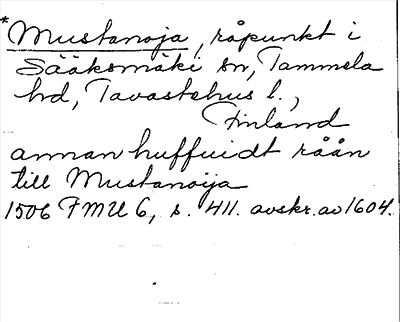 *Mustanoja, råpunkt i
Sääksmäki sn, Tammela
hd, Tavastehus l.,
Finland
annan huffuidt råån
till Mustanoija
1506 FMU 6, s. 411. avskr. av 1604.